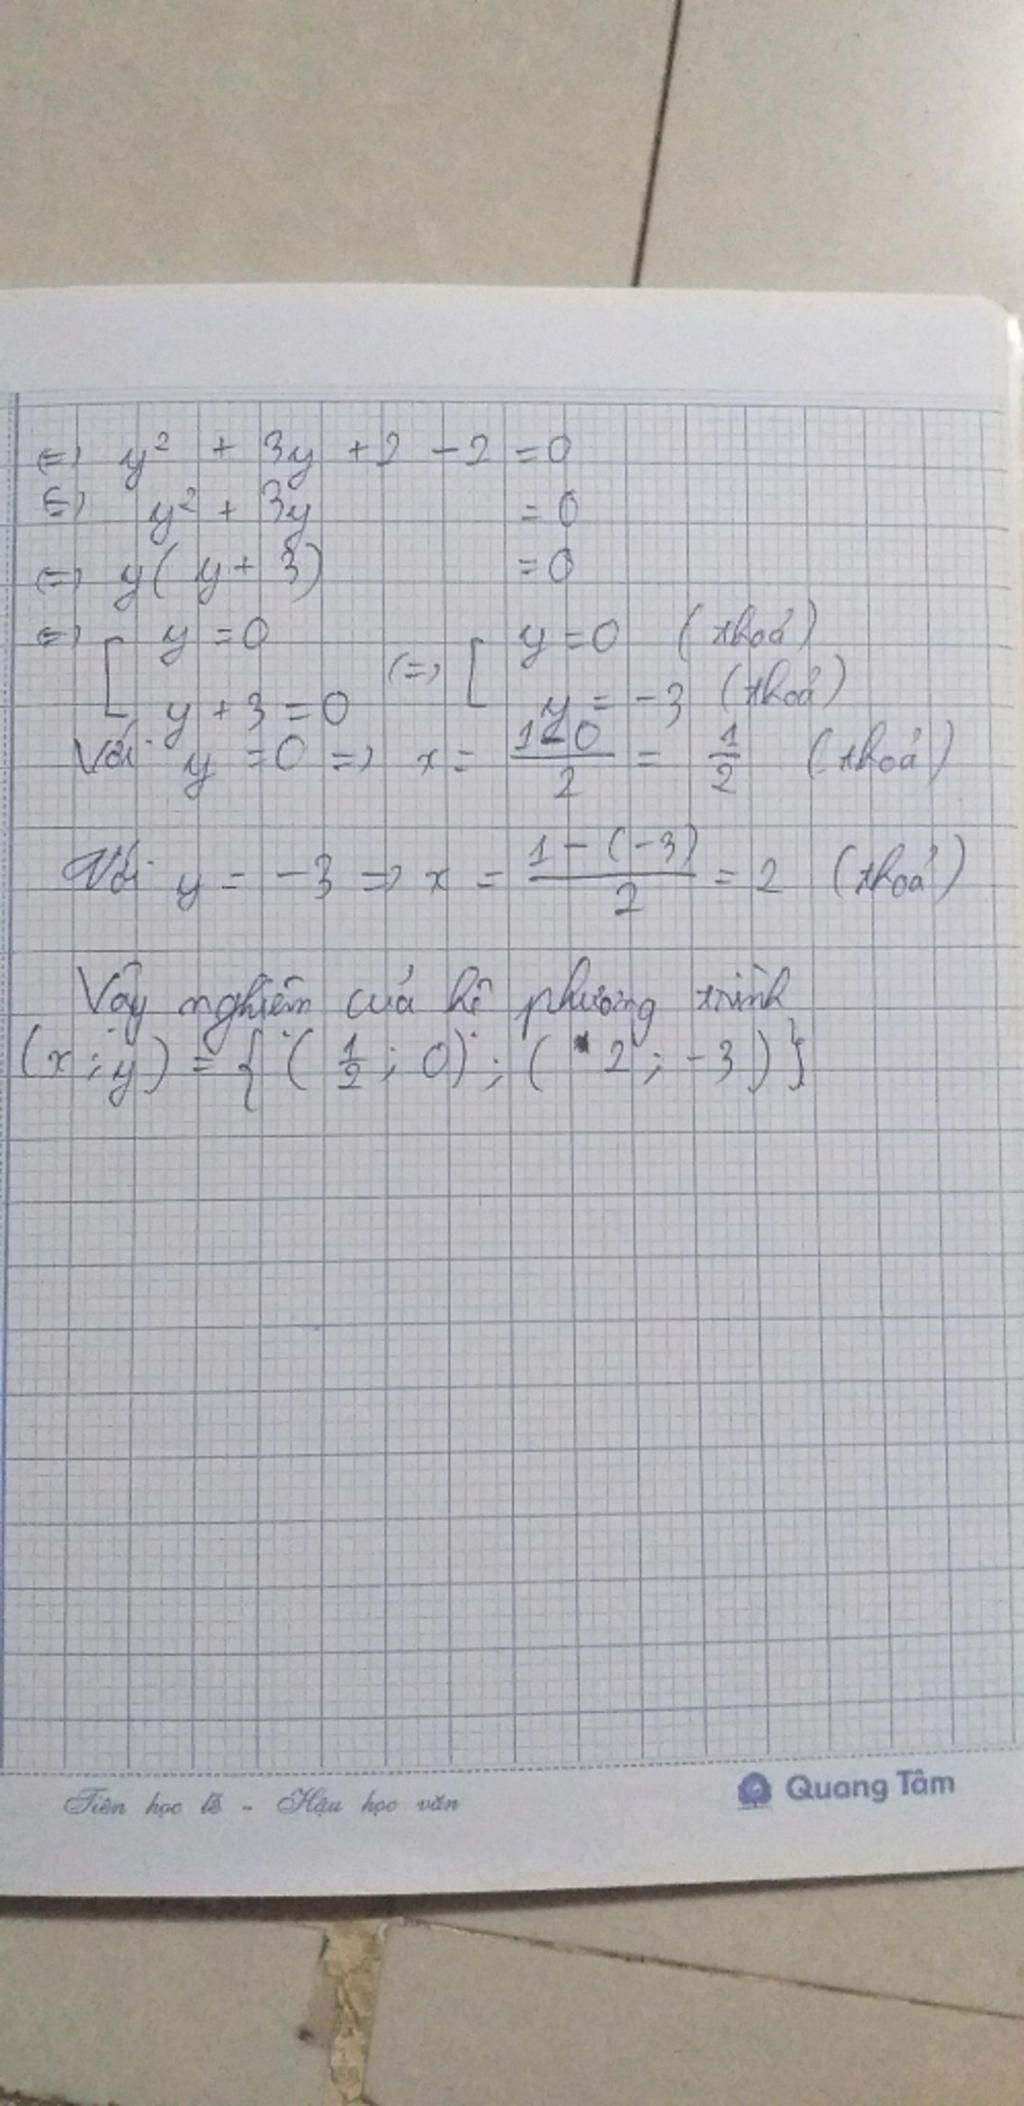 <=> y² + 3y + 2 - 2 = 0
<=> y² + 3y = 0
<=> y(y + 3) = 0
<=> [ y = 0 <=> [ y = 0 (thoả)
y + 3 = 0 y = -3 (thoả)
Với y = 0 => x = (1 - 0)/2 = 1/2 (thoả)
Với y = -3 => x = (1 - (-3))/2 = 2 (thoả)
Vậy nghiệm của hệ phương trình
(x; y) = { (1/2; 0); (2; -3) }
Tiên học lễ - Hậu học văn
Quang Tâm